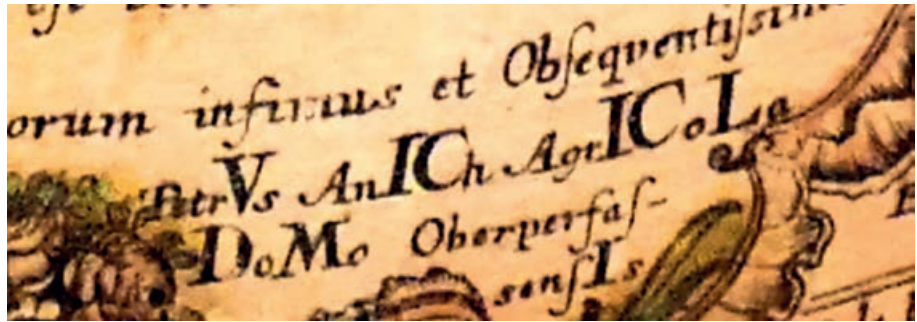 orum infimus et Obſequentiſsim
PetrVs AnICh AgrICoLa
DoMo Oberperfaſ-
senſIs